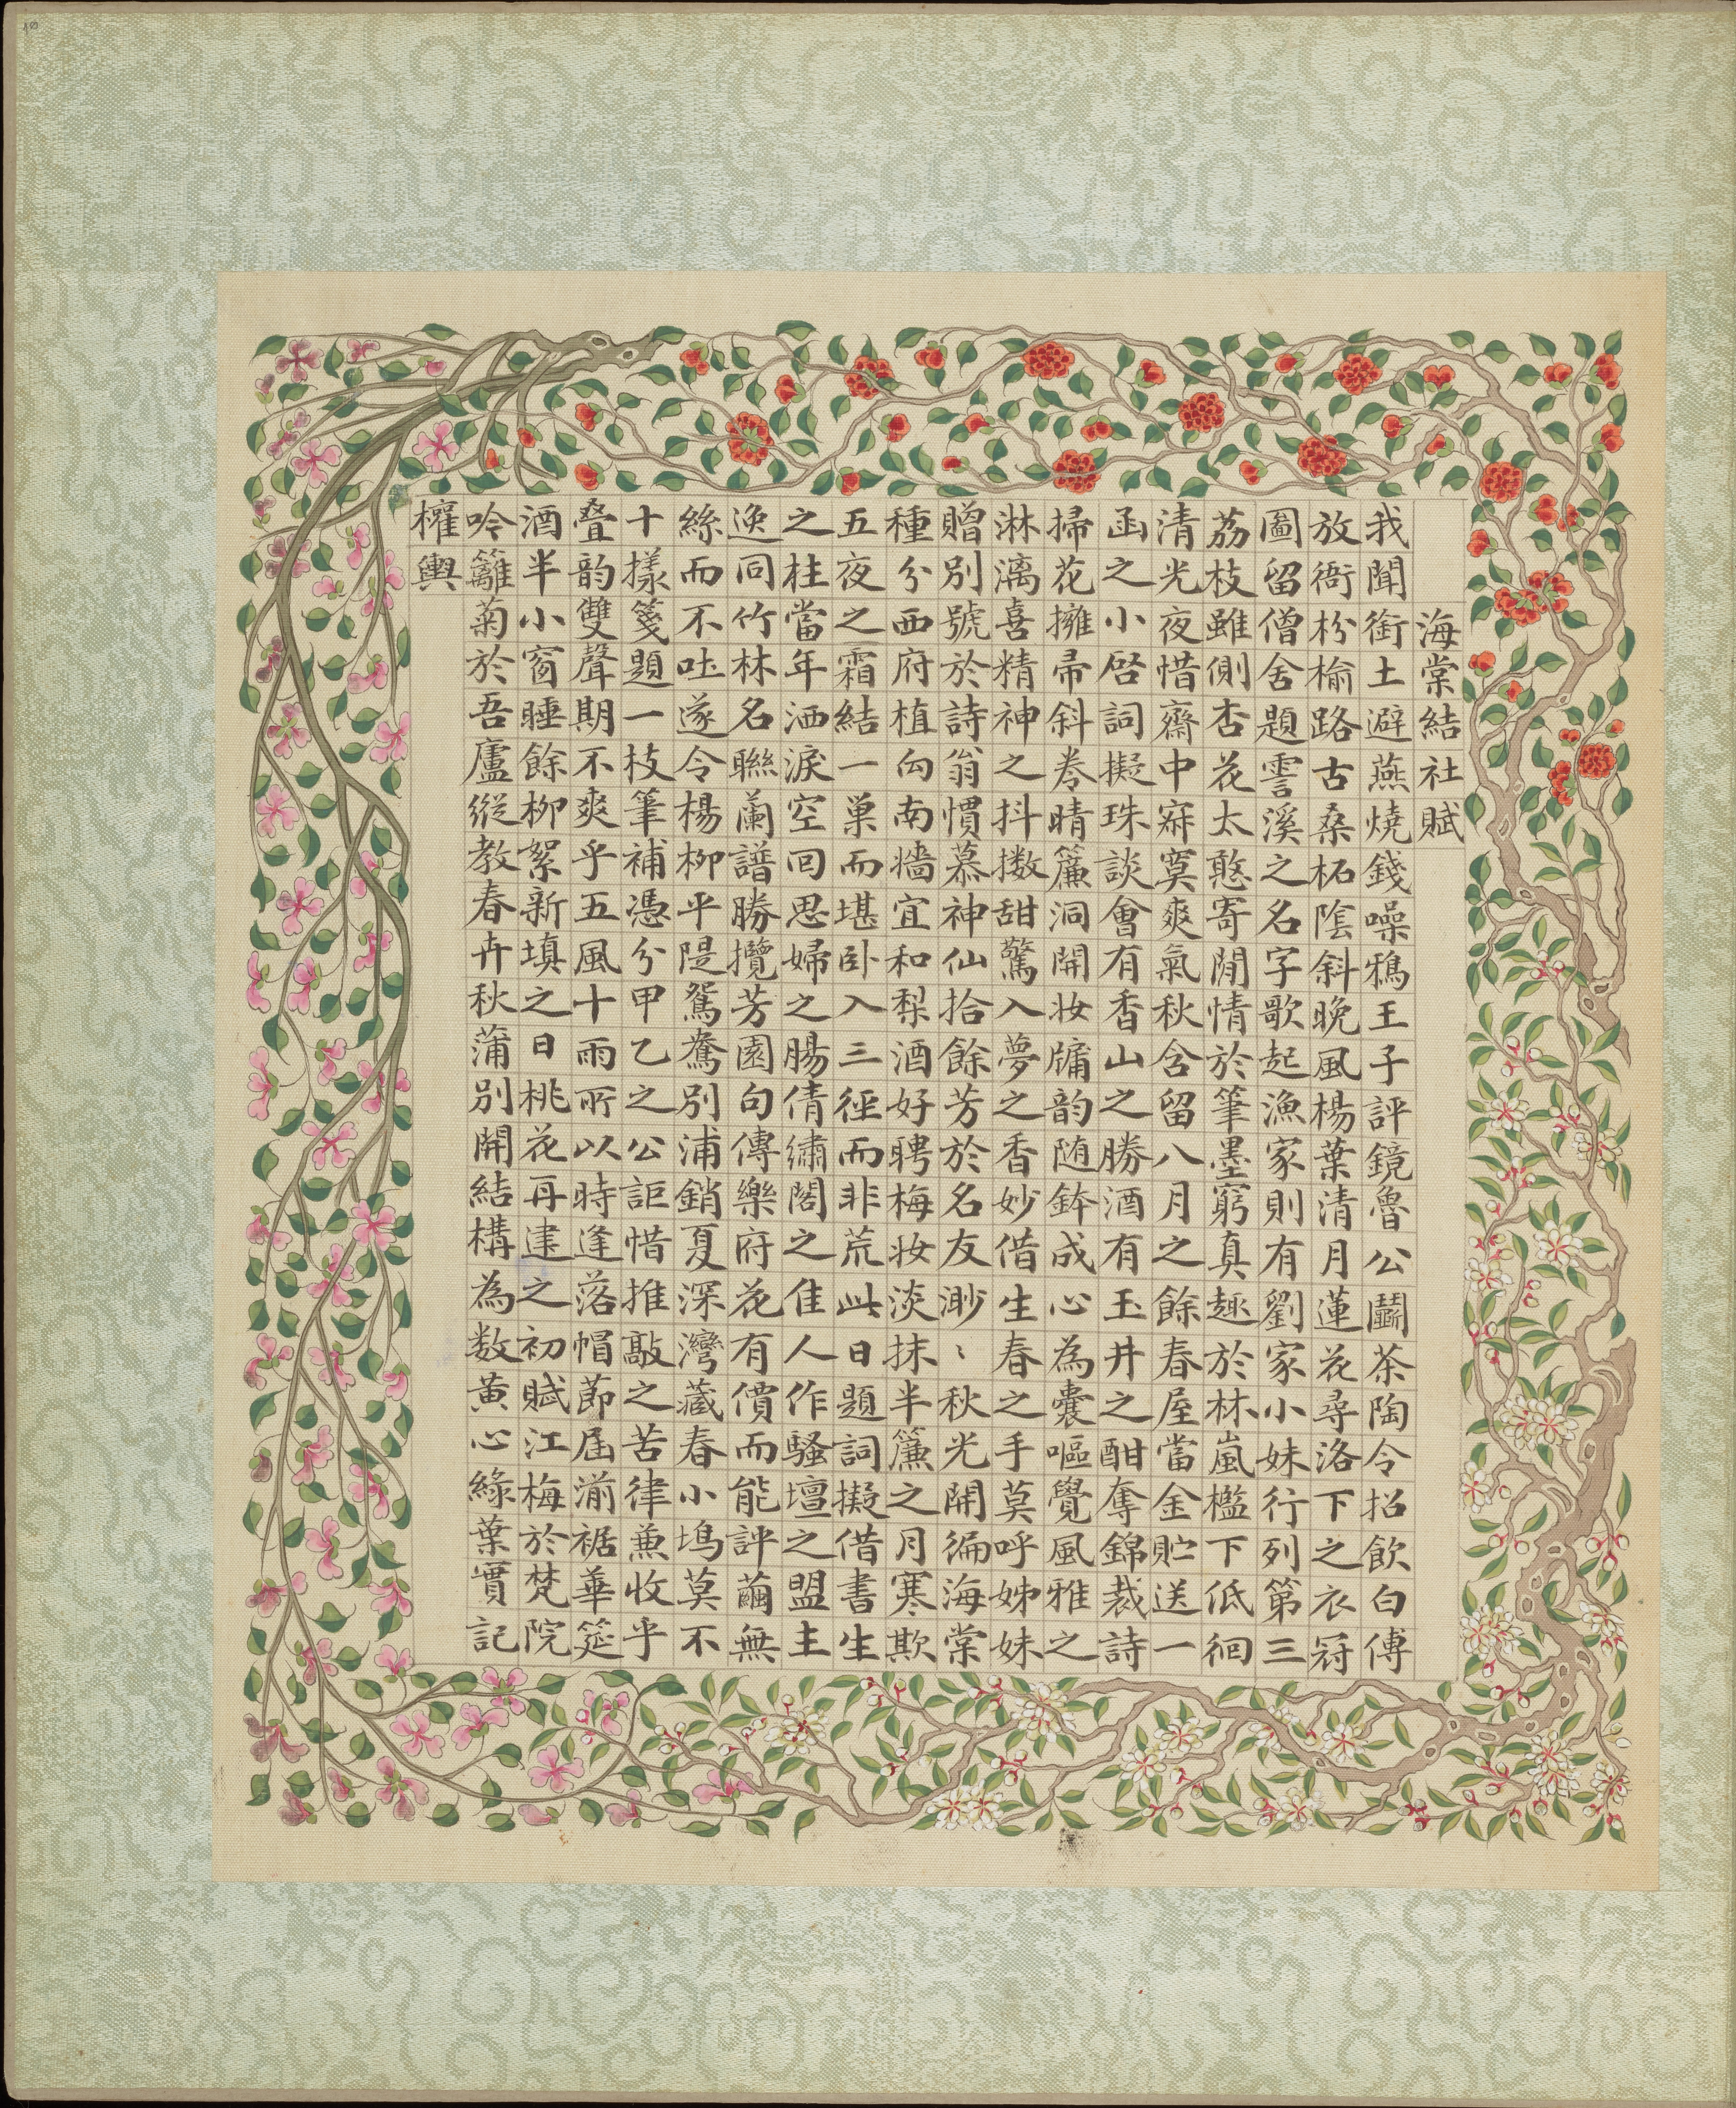 海棠結社賦
我聞銜土避燕燒錢噪鴉王子評鏡魯公鬬茶陶令招飲白傅
放衙枌榆路古桑柘陰斜晚風楊葉清月蓮花尋洛下之衣冠
圖留僧舍題霅溪之名字歌起漁家則有劉家小妹行列第三
荔枝雖側杏花太憨寄閒情於筆墨窮真趣於林嵐檻下低徊
清光夜惜齋中寂寞爽氣秋含留八月之餘春屋當金貯送一
函之小啓詞擬珠談會有香山之勝酒有玉井之酣奪錦裁詩
掃花擁帚斜卷晴簾洞開妝牖韵随鉢成心為囊嘔覺風雅之
淋漓喜精神之抖擻甜驚入夢之香妙借生春之手莫呼姊妹
贈別號於詩翁慣慕神仙拾餘芳於名友渺〻秋光開徧海棠
種分西府植向南墻宜和梨酒好聘梅妝淡抹半簾之月寒欺
五夜之霜結一巢而堪卧入三徑而非荒此日題詞擬借書生
之柱當年洒淚空回思婦之腸倩繡閣之隹人作騷壇之盟主
逸同竹林名聯蘭譜勝攬芳園句傳樂府花有價而能評繭無
絲而不吐遂令楊柳平隄鴛鴦別浦銷夏深灣藏春小塢莫不
十樣箋題一枝筆補憑分甲乙之公詎惜推敲之苦律兼收乎
疊韵雙聲期不爽乎五風十雨所以時逢落帽節屆湔裾華筵
酒半小窗睡餘柳絮新填之日桃花再建之初賦江梅於梵院
吟籬菊於吾廬縱教春卉秋蒲別開結構為数黄心綠葉實記
權輿